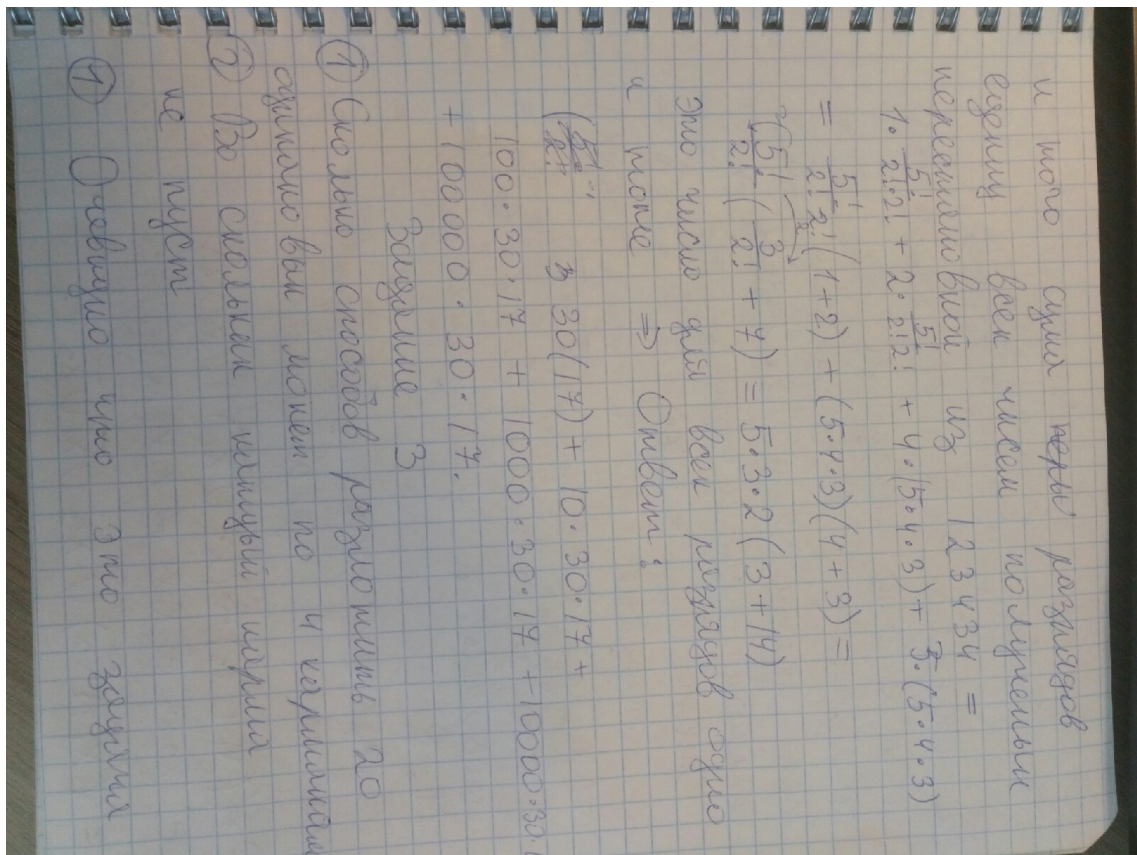 и того сумма разрядов
единиц всех чисел полученых
перестановкой из 123434 =
1·5!/2!·2! + 2·5!/2!2! + 4·(5·4·3) + 3·(5·4·3)
= 5!/2!2!(1+2) + (5·4·3)(4+3) =
5!/2!(3/2! + 7) = 5·3·2(3+14)
Это число для всех разрядов одно
и тоже ⇒ Ответ:
30(17) + 10·30·17 +
100·30·17 + 1000·30·17 + 10000·30·
+ 100000·30·17.
Задание 3
① Сколько способов разложить 20
одинаковых монет по 4 карманам
② Во скольких ситуациях карман
не пуст
① Очевидно что это задача